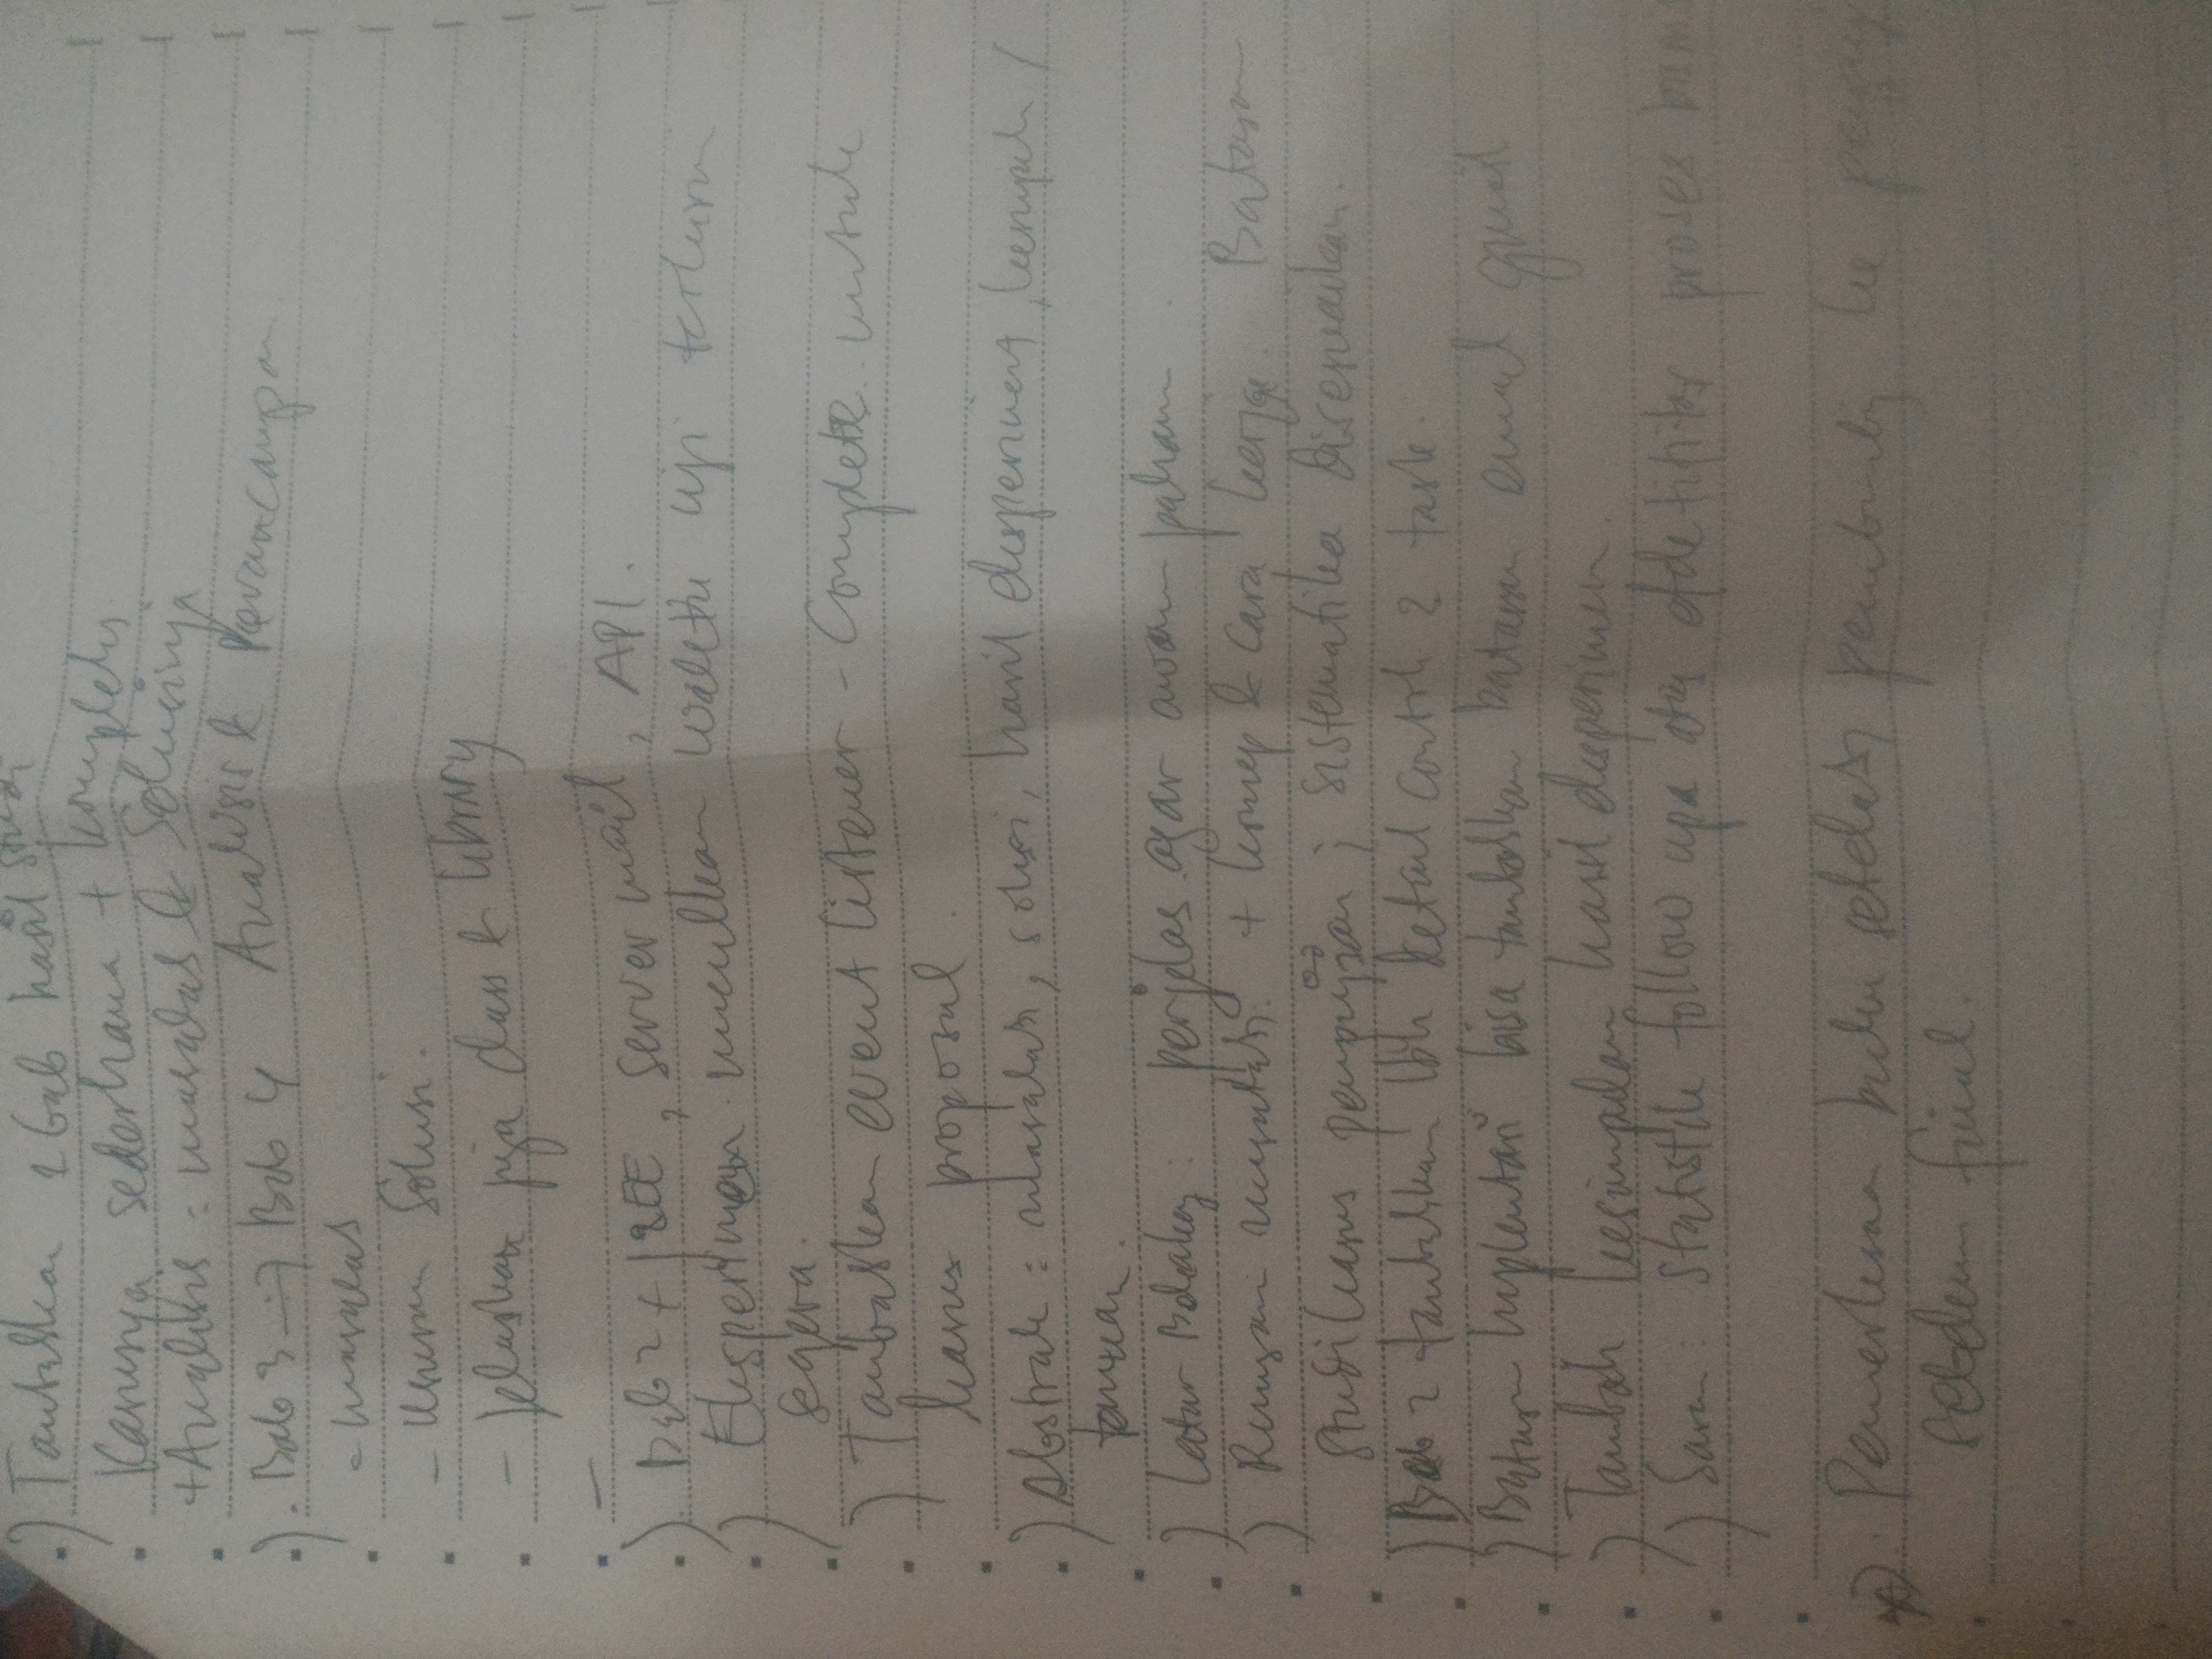 ) Tambahkan 1 bab hasil studi
Kasusnya sederhana + kompleks
+ Analisis = masalah & Solusinya
). Bab 3 → Bab 4 Analisis & Perancangan
- masalah
- Usulan Solusi.
- Jelaskan juga class & library
-
). Bab 2 + J2EE, server mail, API.
) Eksperimen munculkan waktu uji
segera.
) Tambahkan event listener - Complete untuk
kasus proposal.
) Abstrak = masalah, solusi, hasil eksperimen, kesimpul /
) Latar Belakang : perjelas agar awam paham.
) Rumusan masalah. + konsep & cara kerja. Batasan
studi kasus pengujian ; sistematika disesuaikan.
) Bab 2 tambahkan lbh detail contoh 2 task.
) Batasan Implentasi bisa tambahkan batasan email gmail
) Tambah kesimpulan hasil eksperimen.
) Saran : Statistik follow upa atas proses
). Pemeriksaan buku setelah pembimbing ke
sebelum final.